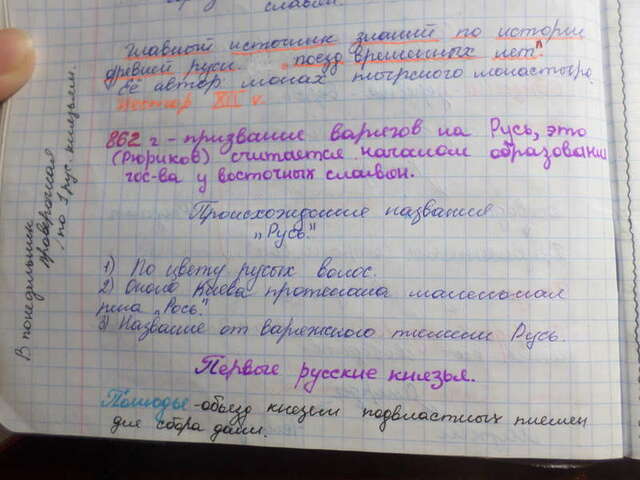 славян.
Главный источник знаний по истории
древней руси. „поезд временных лет"
Её автор монах пырского монастыря.
Нестор XII v.
862 г - призвание варягов на Русь, это
(Рюриков) считается началом образования
гос-ва у восточных славян.
Происхождение названия
„Русь"
1) По цвету русых волос.
2) Около Киева протекала маленькая
река „Рось."
3) Название от варяжского племени Русь.
Первые русские князья.
Полюдье - объезд князем подвластных племен
для сбора дани.
В понедельник
проверочная
по 1 рус. князьям.